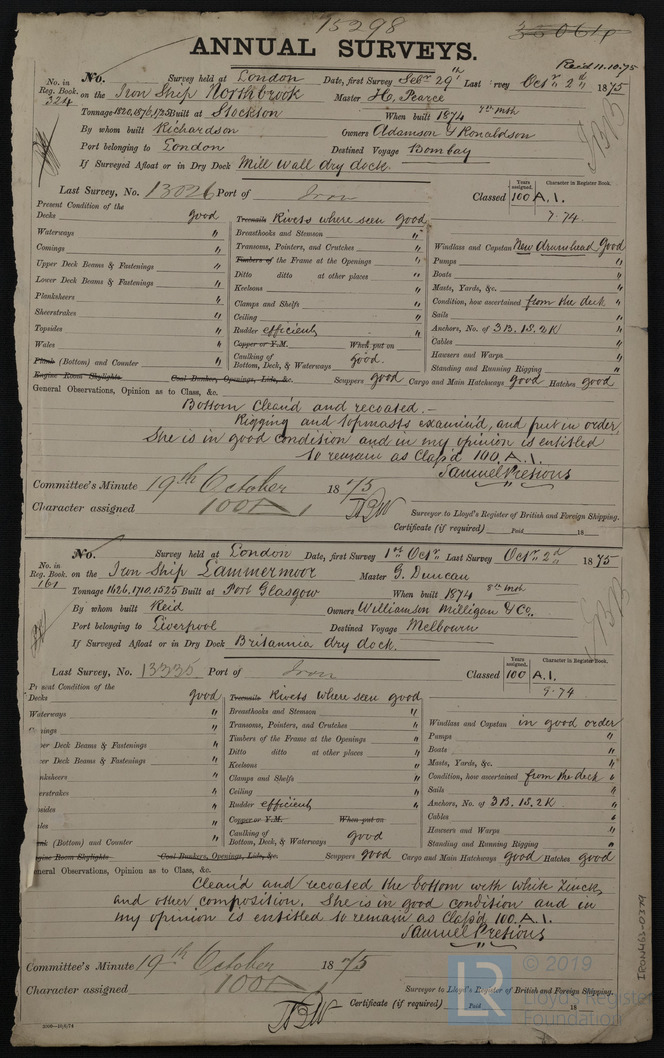 15298
ANNUAL SURVEYS.
Read 11.10.75
No. in Reg. Book. 324
No. Survey held at London Date, first Survey Sebr 29th Last Survey Octr 2d 1875
on the Iron Ship Northbrook Master H. Pearce
Tonnage 1820,1876,1725 Built at Stockton When built 1874 7th mth
By whom built Richardson Owners Adamson & Ronaldson
Port belonging to London Destined Voyage Bombay
If Surveyed Afloat or in Dry Dock Mill wall dry dock.
Last Survey, No. 13026 Port of Iron Classed Years assigned. 100 Character in Register Book. A.1.
7.74
Present Condition of the
Decks good
Waterways "
Comings "
Upper Deck Beams & Fastenings "
Lower Deck Beams & Fastenings "
Planksheers "
Sheerstrakes "
Topsides "
Wales "
Plank (Bottom) and Counter "
Engine Room Skylights
Treenails Rivets where seen good
Breasthooks and Stemson "
Transoms, Pointers, and Crutches "
Timbers of the Frame at the Openings "
Ditto ditto at other places "
Keelsons "
Clamps and Shelfs "
Ceiling "
Rudder efficient "
Copper or Y.M. When put on
Caulking of Bottom, Deck, & Waterways good.
Coal Bunker, Openings, Lids, &c.
Windlass and Capstan New drumhead Good
Pumps "
Boats "
Masts, Yards, &c. "
Condition, how ascertained from the deck "
Sails "
Anchors, No. of 3B. 1S. 2K "
Cables "
Hawsers and Warps "
Standing and Running Rigging "
Scuppers good Cargo and Main Hatchways good Hatches good
General Observations, Opinion as to Class, &c.
Bottom Clean'd and recoated.—
Rigging and topmasts examin'd, and put in order
She is in good condition and in my opinion is entitled
to remain as Class'd 100. A.1.
Samuel Pretious
Committee's Minute 19th October 1875
Character assigned 100 A 1
Surveyor to Lloyd's Register of British and Foreign Shipping.
Certificate (if required) Paid 18
No. in Reg. Book. 161
No. Survey held at London Date, first Survey 1st Octr Last Survey Octr 2d 1875
on the Iron Ship Lammermoor Master G. Duncan
Tonnage 1626,1710,1525 Built at Port Glasgow When built 1874 8th mth
By whom built Reid Owners Williamson Milligan & Co.
Port belonging to Liverpool Destined Voyage Melbourn
If Surveyed Afloat or in Dry Dock Britannia dry dock.
Last Survey, No. 13335 Port of Iron Classed Years assigned. 100 Character in Register Book. A.1.
9.74
Present Condition of the
Decks good
Waterways "
Comings "
Upper Deck Beams & Fastenings "
Lower Deck Beams & Fastenings "
Planksheers "
Sheerstrakes "
Topsides "
Wales "
Plank (Bottom) and Counter "
Engine Room Skylights
Treenails Rivets where seen good
Breasthooks and Stemson "
Transoms, Pointers, and Crutches "
Timbers of the Frame at the Openings "
Ditto ditto at other places "
Keelsons "
Clamps and Shelfs "
Ceiling "
Rudder efficient "
Copper or Y.M. When put on
Caulking of Bottom, Deck, & Waterways good
Coal Bunkers, Openings, Lids, &c.
Windlass and Capstan in good order
Pumps "
Boats "
Masts, Yards, &c. "
Condition, how ascertained from the deck "
Sails "
Anchors, No. of 3B. 1S. 2K "
Cables "
Hawsers and Warps "
Standing and Running Rigging "
Scuppers good Cargo and Main Hatchways good Hatches good
General Observations, Opinion as to Class, &c.
Clean'd and recoated the bottom with white Zinck,
and other composition. She is in good condition and in
my opinion is entitled to remain as Class'd 100. A.1.
Samuel Pretious
Committee's Minute 19th October 1875
Character assigned 100 A 1
Surveyor to Lloyd's Register of British and Foreign Shipping.
Certificate (if required) Paid 18
IRON463-0379
LR © 2019
Lloyd's Register
Foundation